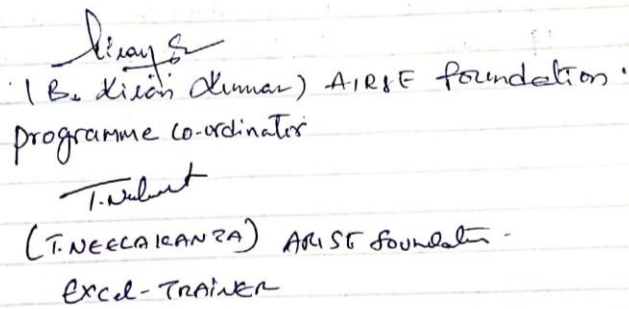 (B. Kiran Kumar) AIRSE foundation.
programme co-ordinator
(T. NEELAKANZA) ARISE foundation -
Excel - TRAINER